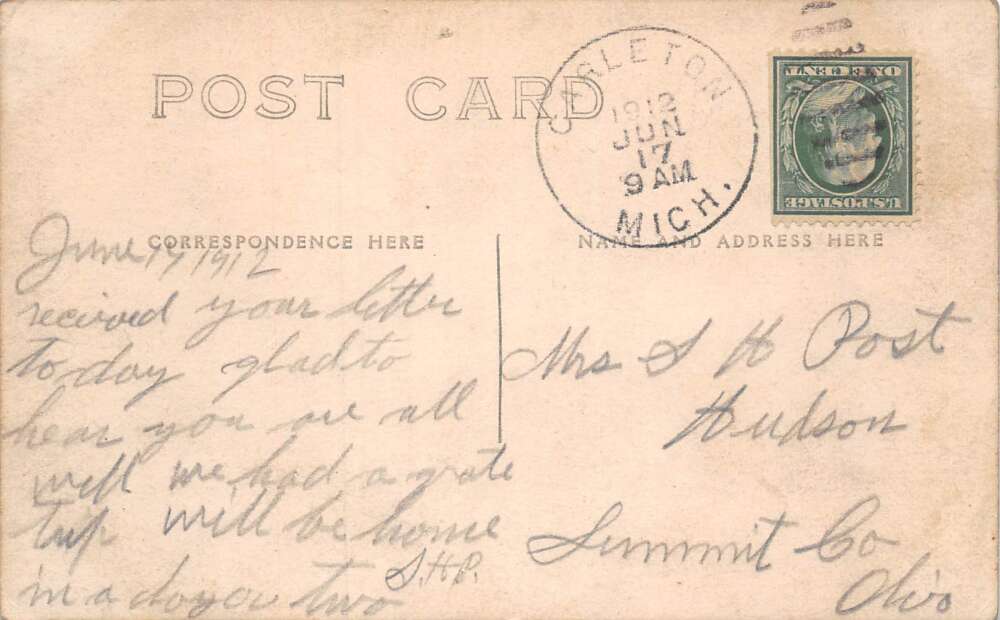 POST CARD
CARLETON
1912
JUN
17
9 AM
MICH.
ONE CENT
U.S. POSTAGE
CORRESPONDENCE HERE
NAME AND ADDRESS HERE
June 17 1912
recieved your letter
to day glad to
hear you are all
well we had a grate
trip will be home
in a day or two
S.H.P.
Mrs S H Post
Hudson
Summit Co
Ohio